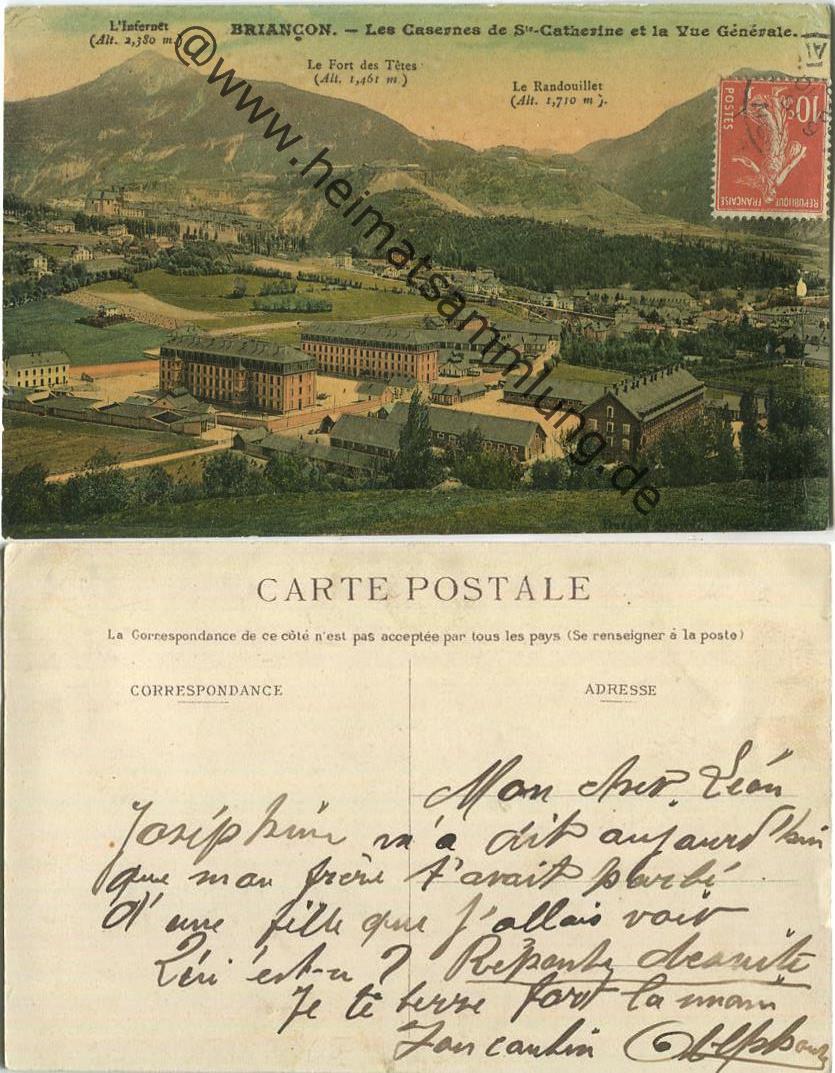 L'Infernet
(Alt. 2,380 m.)
BRIANÇON. — Les Casernes de Ste-Catherine et la Vue Générale.
Le Fort des Têtes
(Alt. 1,461 m)
Le Randouillet
(Alt. 1,710 m).
10c
POSTES
RÉPUBLIQUE FRANÇAISE
@www.heimatsammlung.de
CARTE POSTALE
La Correspondance de ce côté n'est pas acceptée par tous les pays (Se renseigner à la poste)
CORRESPONDANCE
ADRESSE
Mon cher Léon
Joséphine m'a dit aujourd'hui
que mon frère t'avait parlé
d'une fille que j'allais voir
Qui est-ce ? Réponse de suite
Je te serre fort la main
Ton Alphonse